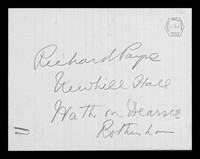 Richard Payne
Newhill Hall
Wath on Dearne
Rotherham